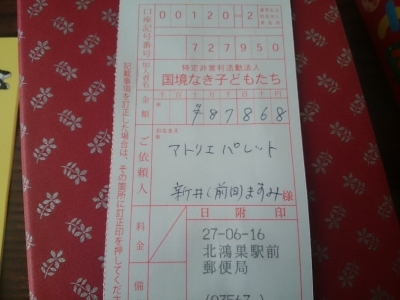 口座記号番号
00120=2
727950
加入者名
特定非営利活動法人
国境なき子どもたち
金額
千百十万千百十円
¥87868
ご依頼人
アトリエ パレット
新井(前田)ますみ様
料金
日附印
27-06-16
北鴻巣駅前
郵便局
備
記載事項を訂正した場合は、その箇所に訂正印を押してくださ